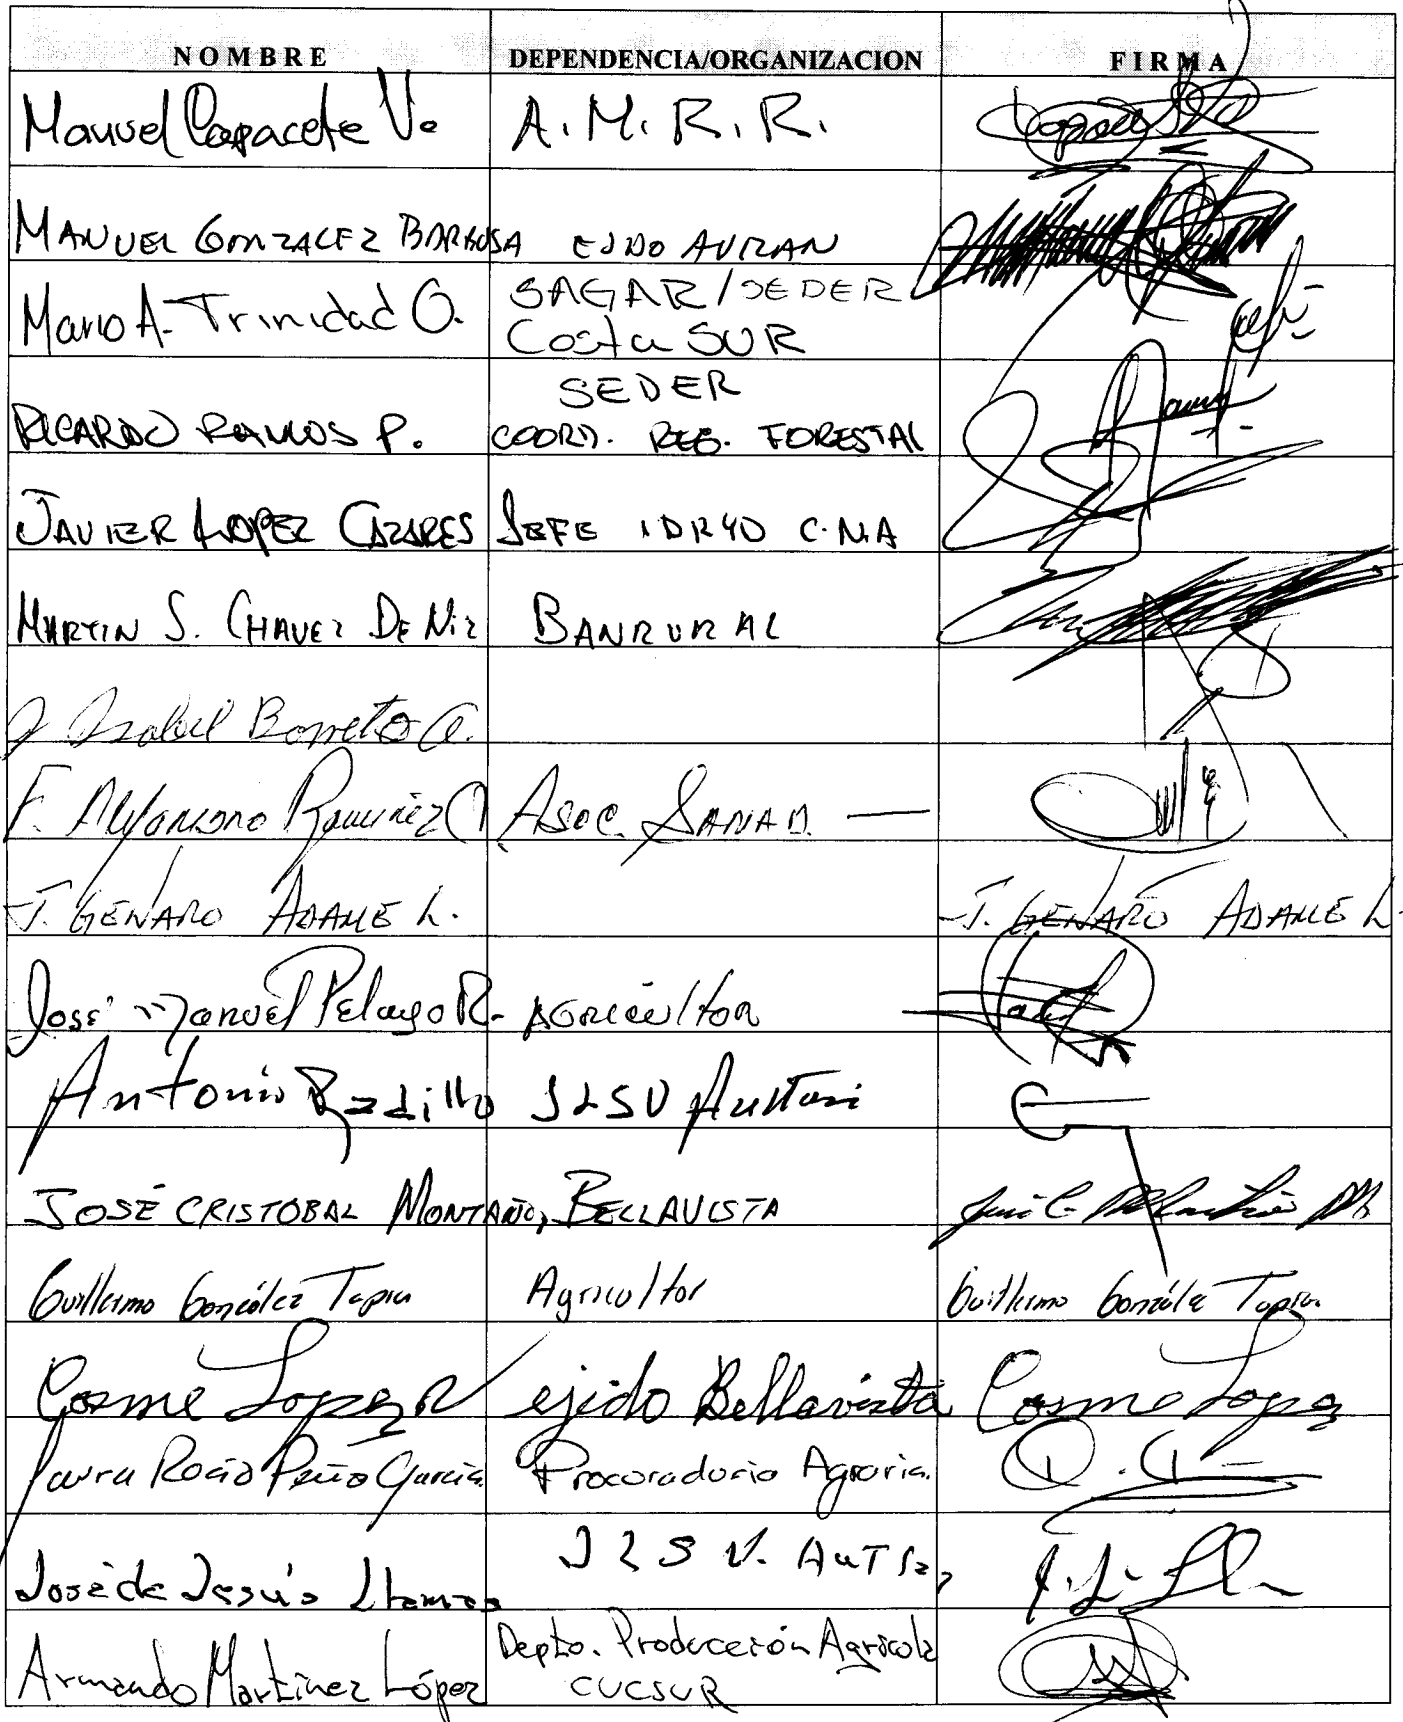 NOMBRE DEPENDENCIA/ORGANIZACION FIRMA
Manuel Capacete V. A.M.R.R.
MANUEL GONZALEZ BARBOSA EJIDO AUTLAN
Mario A. Trinidad O. SAGAR/SEDER
Costa SUR
SEDER
RICARDO RAMOS P. COORD. REG. FORESTAL
JAVIER LOPEZ CAZARES JEFE C.N.A
MARTIN S. CHAVEZ DE NIZ BANRURAL
J Isabel Barreto A.
F. Ramirez Asoc. GANAD.
J. GENARO ADAME L. J. GENARO ADAME L.
José Manuel Pelayo R. AGRICULTOR
Antonio Badillo JLSV Autlan
JOSÉ CRISTOBAL MONTAÑO, BELLAVISTA
Guillermo González Tapia Agricultor Guillermo González Tapia
Cosme Lopez R ejido Bellavista Cosme Lopez
Laura Rocío Peña García Procuraduria Agraria.
José de Jesús Llamas JLSV. AUTLAN
Depto. Producción Agrícola
Armando Martínez López CUCSUR